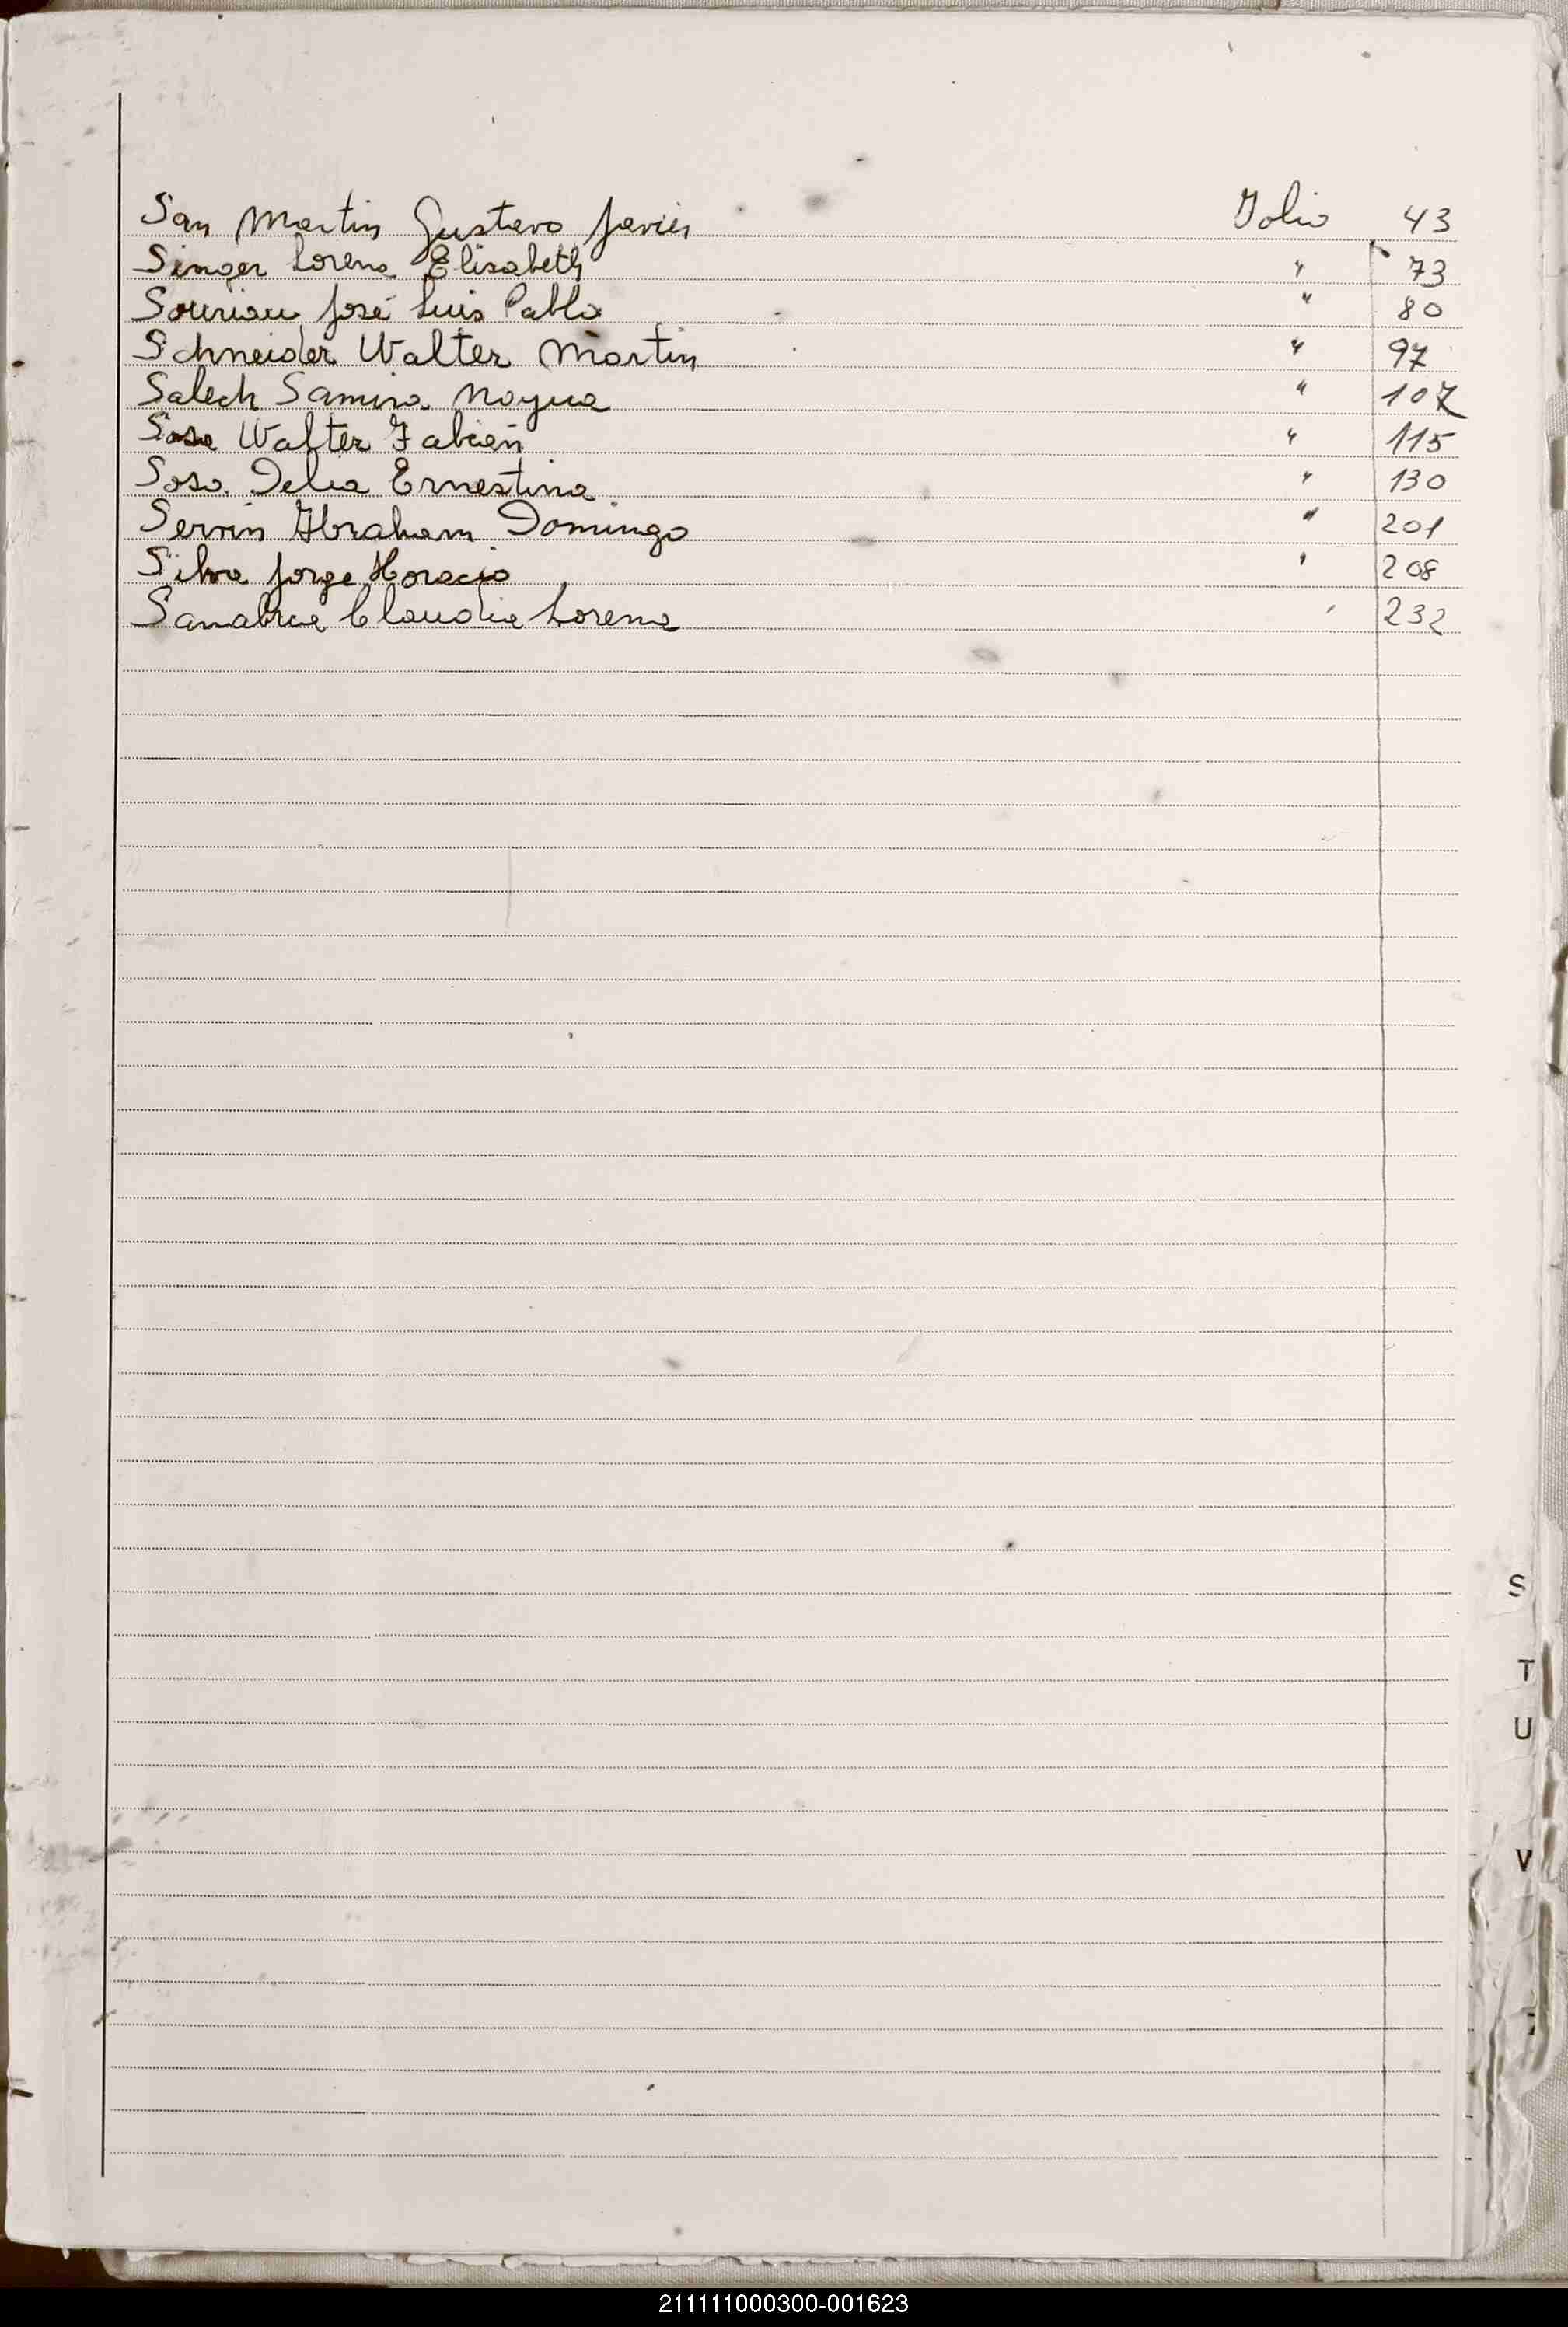 San Martin Gustavo Javier Folio 43
Singer Lorena Elisabeth " 73
Souriau José Luis Pablo " 80
Schneider Walter Martin " 97
Salech Samira Nayua " 107
Sosa Walter Fabián " 115
Sosa Delia Ernestina " 130
Servin Abraham Domingo " 201
Silva Jorge Horacio " 208
Sanabria Claudia Lorena " 232
S
T
U
V
211111000300-001623